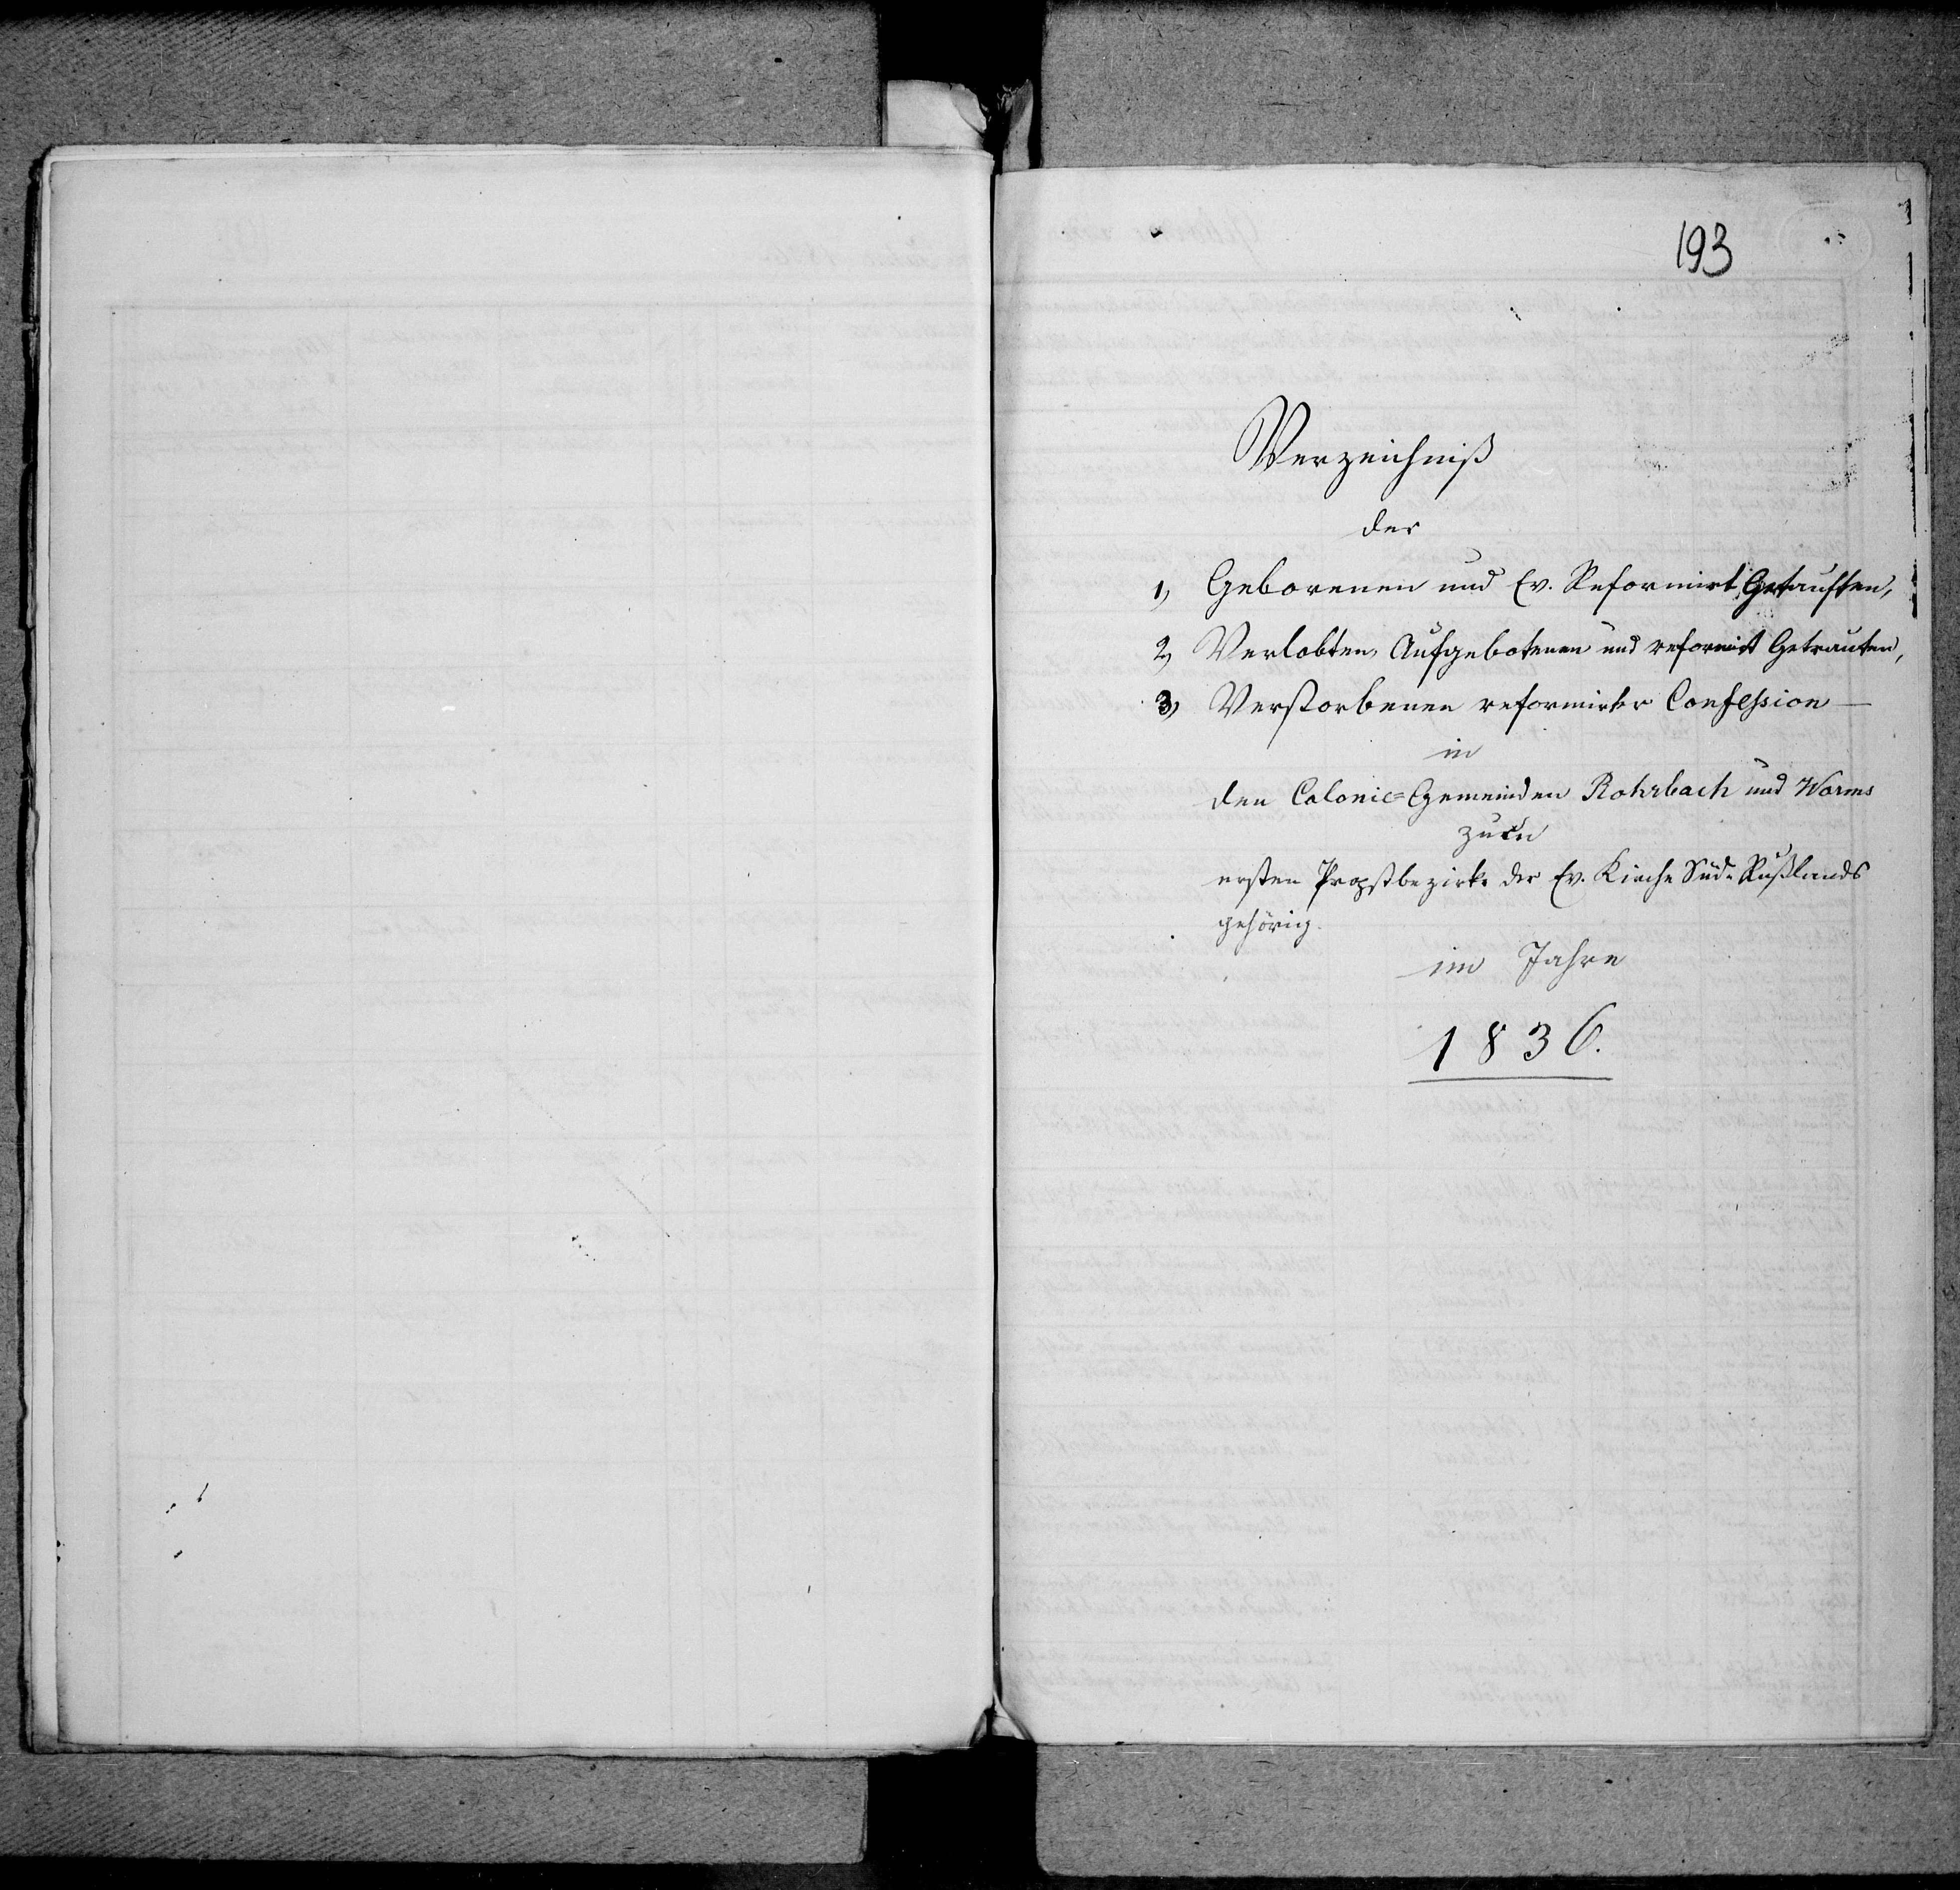 193
Verzeichniß
der
1) Geborenen und Ev. Reformirt Getauften,
2) Verlobten, Aufgebotenen und reformirt Getrauten,
3) Verstorbenen reformirter Confession —
in
den Colonie=Gemeinden Rohrbach und Worms
zum
ersten Propstbezirke der Ev. Kirche Süd-Rußlands
gehörig.
im Jahre
1836.